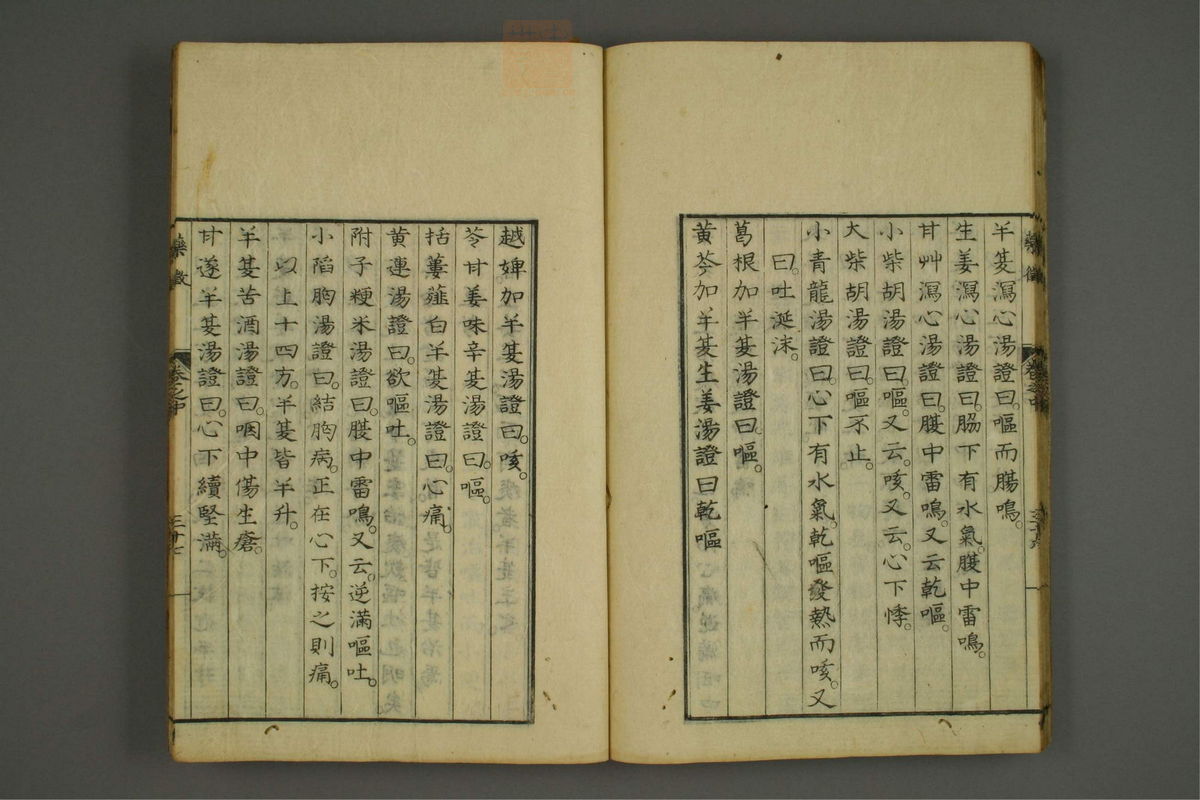 藥徵 卷之中
半夏瀉心湯證曰。嘔而腸鳴。
生姜瀉心湯證曰。脇下有水氣。腹中雷鳴。
甘艸瀉心湯證曰。腹中雷鳴。又云乾嘔。
小柴胡湯證曰。嘔。又云。咳。又云。心下悸。
大柴胡湯證曰。嘔不止。
小青龍湯證曰。心下有水氣。乾嘔發熱而咳。又
曰。吐涎沫。
葛根加半夏湯證曰。嘔。
黄芩加半夏生姜湯證曰乾嘔
越婢加半夏湯證曰。咳。
苓甘姜味辛夏湯證曰。嘔。
括蔞薤白半夏湯證曰。心痛。
黄連湯證曰。欲嘔吐。
附子粳米湯證曰。腹中雷鳴。又云。逆滿嘔吐。
小陷胸湯證曰。結胸病。正在心下。按之則痛。
以上十四方。半夏皆半升。
半夏苦酒湯證曰。咽中傷生瘡。
甘遂半夏湯證曰。心下續堅滿。
藥徵 卷之中 三十七